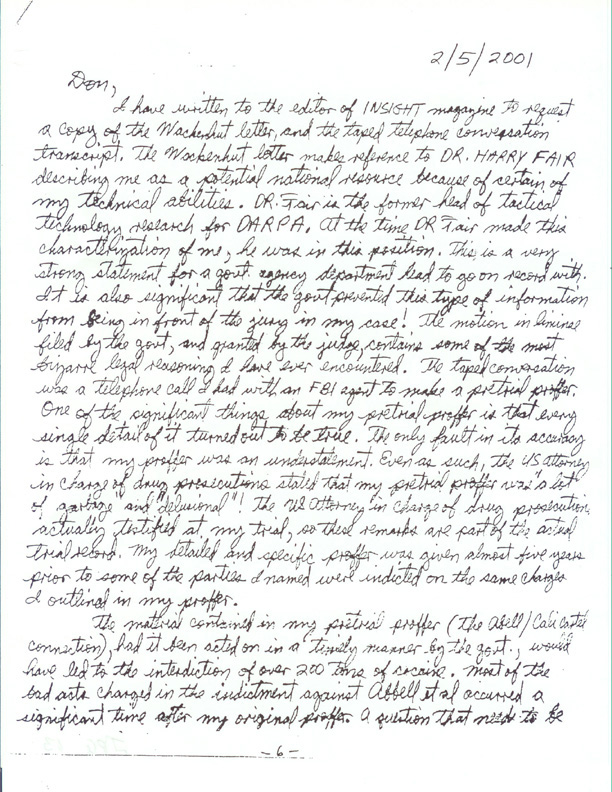 2/5/2001
Don,
I have written to the editor of INSIGHT magazine to request
a copy of the Wackenhut letter, and the taped telephone conversation
transcript. The Wackenhut letter makes reference to DR. HARRY FAIR
describing me as a potential national resource because of certain of
my technical abilities. DR. Fair is the former head of tactical
technology research for DARPA. At the time DR Fair made this
characterization of me, he was in this position. This is a very
strong statement for a govt. agency department head to go on record with.
It is also significant that the govt prevented this type of information
from being in front of the jury in my case! The motion in liminse
filed by the govt, and granted by the judge, contains some of the most
bizarre legal reasoning I have ever encountered. The taped conversation
was a telephone call I had with an FBI agent to make a pretrial proffer.
One of the significant things about my pretrial proffer is that every
single detail of it turned out to be true. The only fault in its accuracy
is that my proffer was an understatement. Even as such, the US Attorney
in charge of drug prosecutions stated that my pretrial proffer was "a lot
of garbage and "delusional"! The US Attorney in charge of drug prosecutions
actually testified at my trial, so these remarks are part of the actual
trial record. My detailed and specific proffer was given almost five years
prior to some of the parties I named were indicted on the same charges
I outlined in my proffer.
The material contained in my pretrial proffer (the Abell/Cali Cartel
connection), had it been acted on in a timely manner by the govt., would
have led to the interdiction of over 200 tons of cocaine. Most of the
bad acts charged in the indictment against Abbell et al occurred a
significant time after my original proffer. A question that needs to be
-6-